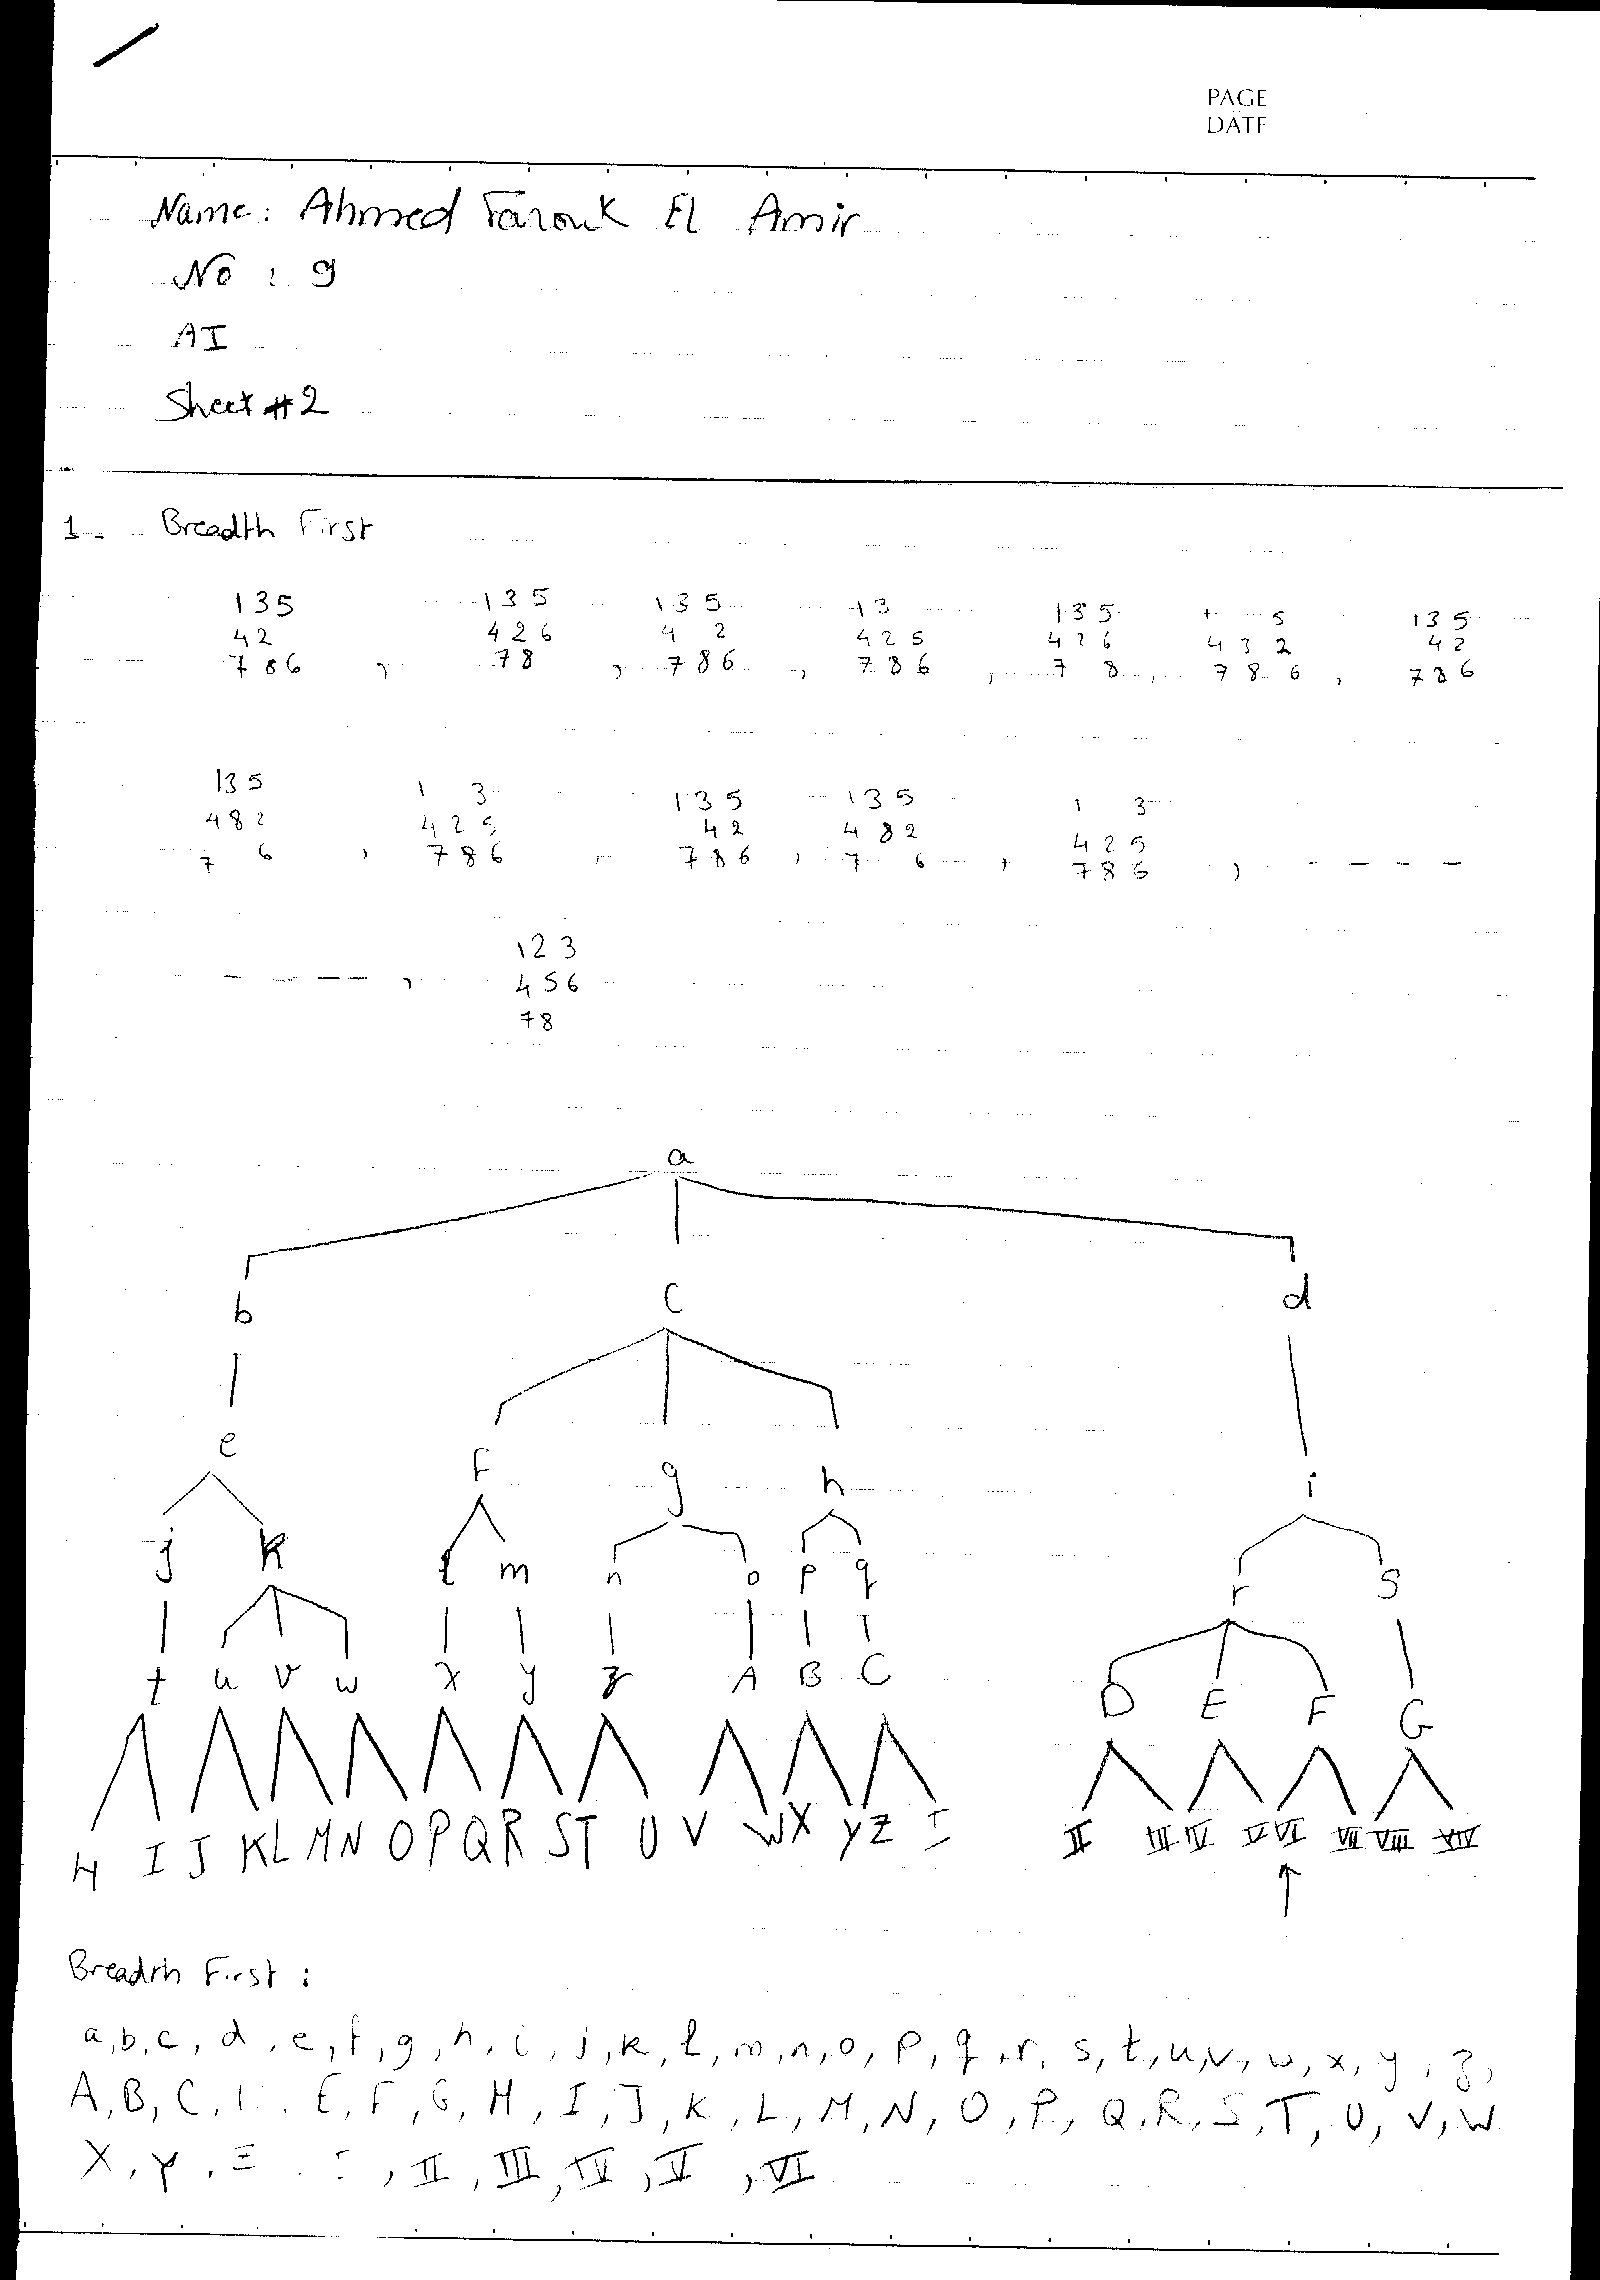 PAGE
DATE
Name: Ahmed Farouk El Amir
No : 9
AI
Sheet #2
1. Breadth First
135 135 135 13 135 5 135
42 426 4 2 425 426 432 42
786 , 78 , 786 , 786 , 7 8 , 786 , 786
135 1 3 135 135 1 3
482 425 42 482 425
7 6 , 786 , 786 , 7 6 , 786 , - - - - -
- - - - - , 123
456
78
a
b C d
e F g h i
j k l m n o p q r s
t u v w x y z A B C D E F G
H I J K L M N O P Q R S T U V W X Y Z I II III IV V VI VII VIII XIV
Breadth First :
a, b, c, d, e, f, g, h, i, j, k, l, m, n, o, p, q, r, s, t, u, v, w, x, y, z,
A, B, C, E, F, G, H, I, J, K, L, M, N, O, P, Q, R, S, T, U, V, W
X, Y, Z, I, II, III, IV, V, VI